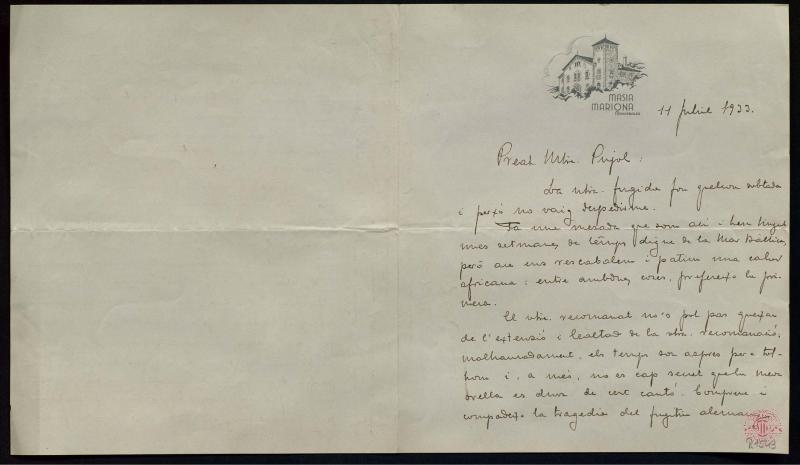 MASIA
MARIONA
11 juliol 1933.
Preat Mtre. Pujol:
La vtra. fugida fou quelcom sobtada
i perxó no vaig despedirme.
Fa una mesada que som ací i hem tingut
unes setmanes de temps digne de la Mar Bàltica,
però ara ens rescabalem i patim una calor
africana: entre ambdues coses, prefereixo la pri-
mera.
El vtre. recomanat no's pot pas queixar
de l'extensió i lealtad de la vtra. recomanació;
malhauradament, els temps son aspres per a tot-
hom i, a més, no es cap secret que la meva
orella es dura de cert cantó. Comprenc i
compadeixo la tragedia del fugitiu alemany
R.1543